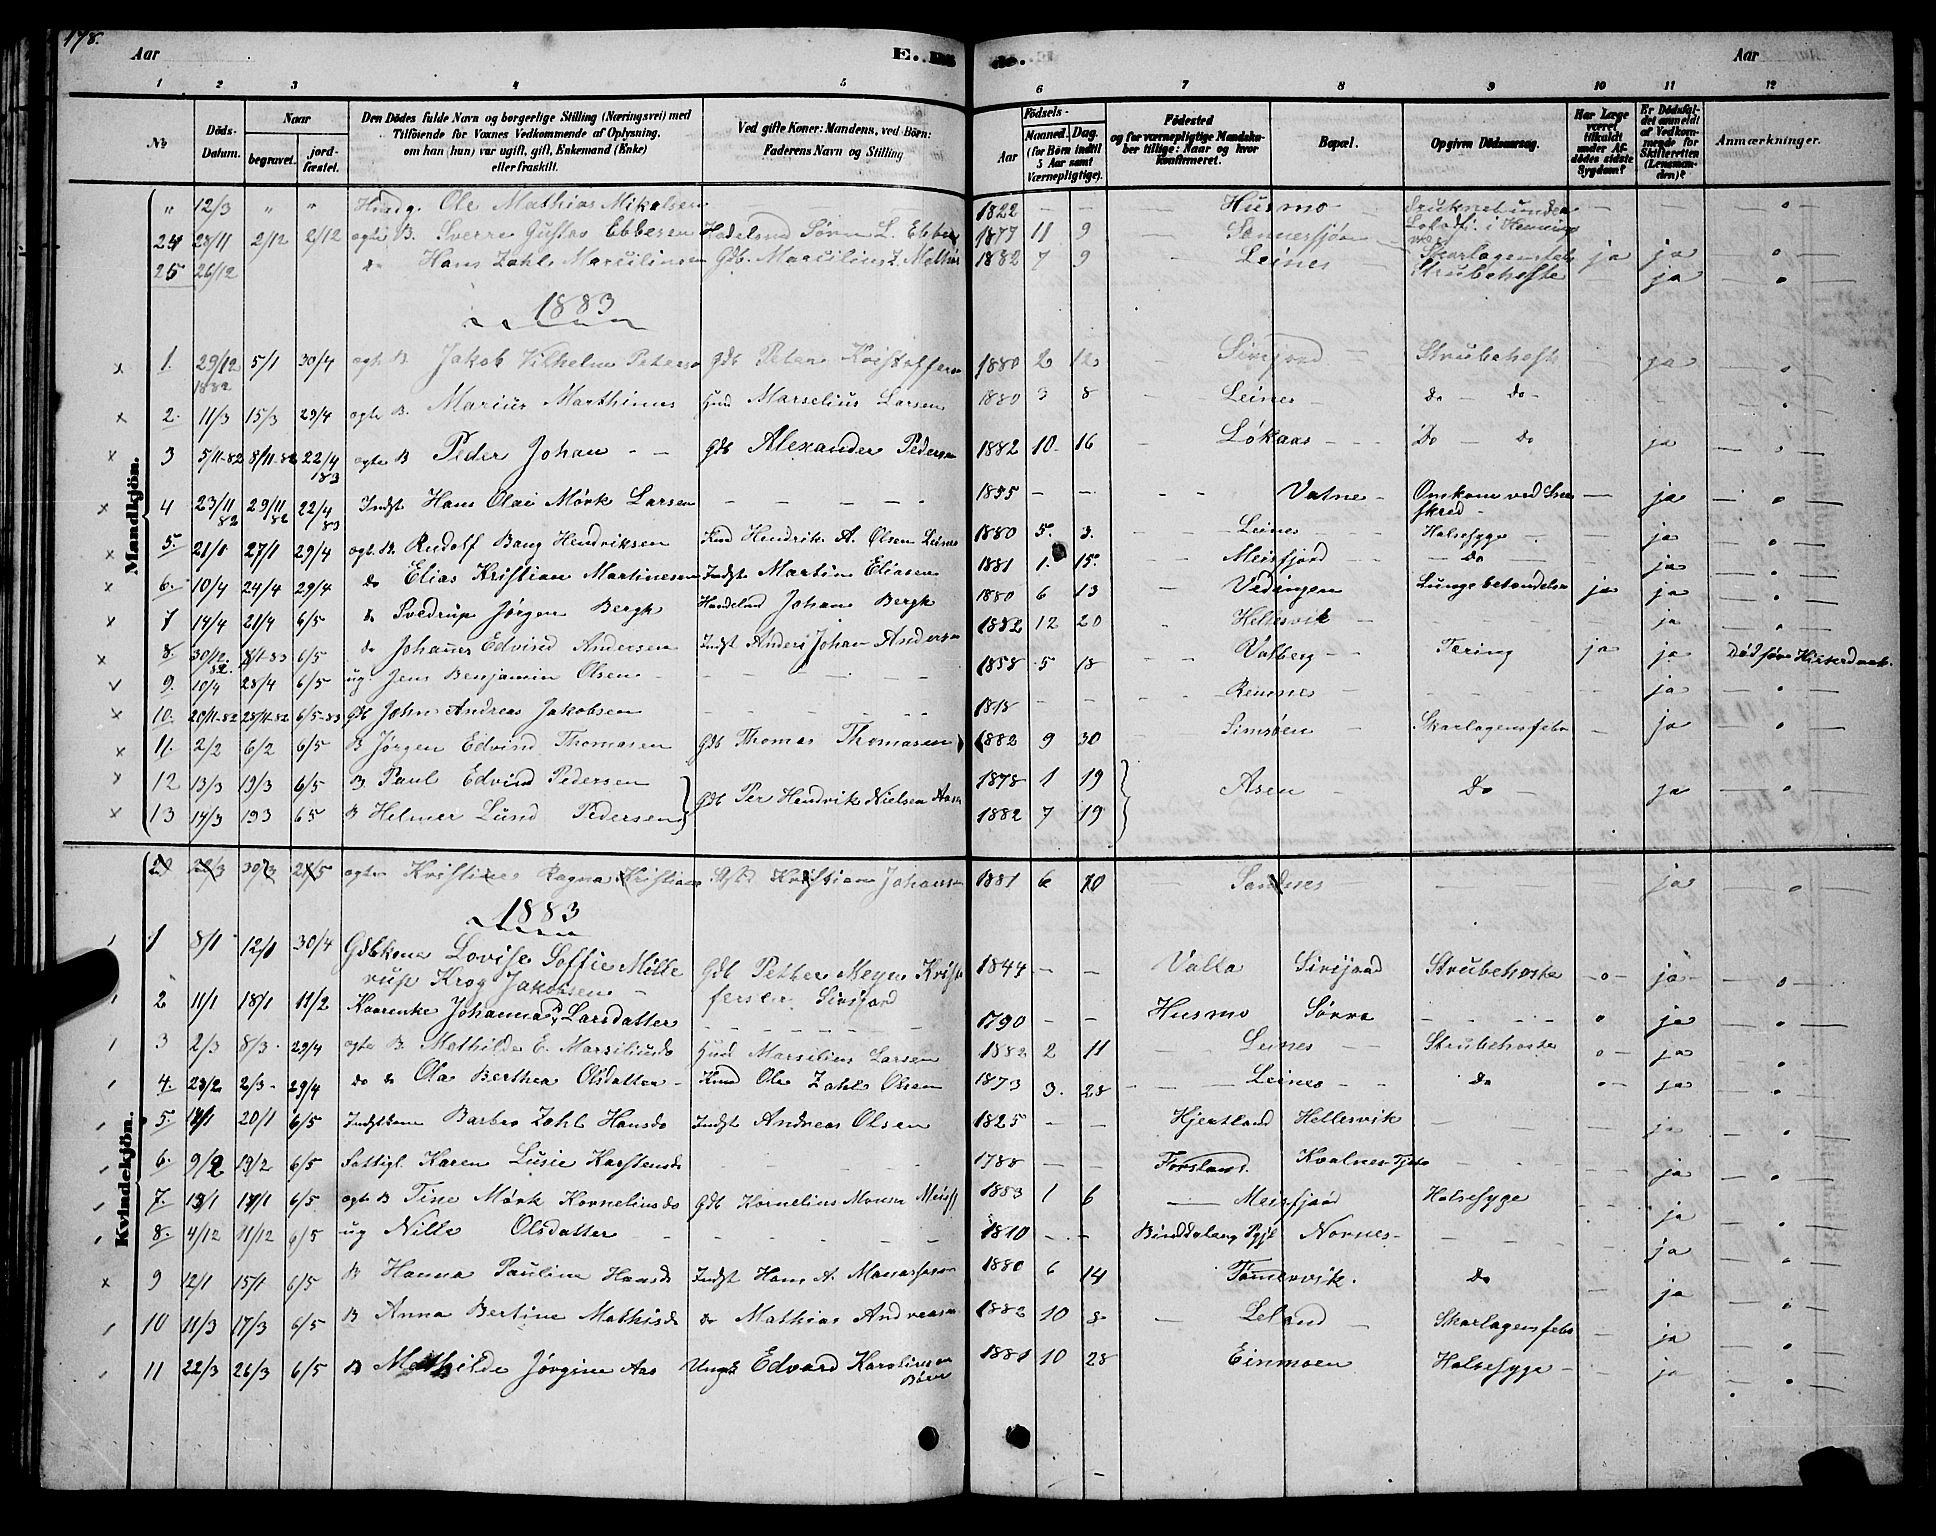 178.
Aar E. Aar
1 2 3 4 5 6 7 8 9 10 11 12
No
Döds-Datum.
Naar
begravet.
jord-fæstet.
Den Dödes fulde Navn og borgerlige Stilling (Næringsvei) med
Tilföiende for Voxnes Vedkommende af Oplysning,
om han (hun) var ugift, gift, Enkemand (Enke)
eller fraskilt.
Ved gifte Koner: Mandens, ved Börn:
Faderens Navn og Stilling
Födsels-
Aar
Maaned. Dag.
(for Börn indtil
5 Aar samt
Værnepligtige).
Födested
og for værnepligtige Mandska-
ber tillige: Naar og hvor
konfirmeret.
Bopæl.
Opgiven Dödsaarsag.
Har Læge
været
tilkaldt
under Af-
dödes sidste
Sygdom?
Er Dödsfal-
det anmeldt
af Vedkom-
mende for
Skifteretten
(Lensman-
den)?
Anmærkninger.
Mandkjön.
" 12/3 " " Ole Mathias Mikalsen 1822 — — Husmo — — o —
24 28/11 2/12 2/12 ægte B. Sverre Gustav Ebbesen Sørn L. Ebbe 1877 11 9 Skarlagensfeb ja ja o
25 26/12 do Hans Zahl Marcelinsen Gdb. 1882 7 9 Leines Strubehoste — ja o
1883
1. 29/12 1882 5/1 30/4 ægte B Jakob Vilhelm Peterse Gdb Peter Kristoffersen 1880 2 12 Sivijord Strubehoste ja o
2. 11/3 15/3 29/4 ægte B. Marius Marthinus Marselius Larsen 1880 3 8 Leines do do o
3 5/11-82 8/11-82 22/4 183 ægte B Peder Johan — Gdb Alexander Pedersen 1882 10 16 Løkaas Do Do ja o
4 23/11 82 29/11 82 22/4 83 Indst Hans Olai Mørk Larsen — — — 1855 — — Vatne Omkom ved Snee skred — ja o
5. 21/1 27/1 29/4 ægt. B. Rudolf Bang Hendriksen Hendrik A. Olsen Leines 1880 5. 3. Leines Halsesyge ja o
6. 10/4 24/4 29/4 do Elias Kristian Martinesen Indst Martin Eliasen 1881 1. 15. Meisfjord Do ja o
7 14/4 21/4 6/5 do Svedrup Jørgen Bergh Johan Bergh 1880 6 13 Vedingen Lungebetændelse ja ja o
8. 30/12 82. 8/1-83 6/5 do Johannes Edvind Andersen Indst Anders Johan Andersen 1882 12 20 Hellesvik ja o
9. 10/4 28/4 6/5 ug Jens Benjamin Olsen — — — 1858 5 18 Valberg Tæring ja ja
10. 20/11-82 28/11-82 6/5-83 Gdb John Andreas Jakobsen — — — 1818 — — Remnes — ja o
11. 2/2 6/2 6/5 B Jørgen Edvind Thomasen Gdb Thomas Thomasen 1882 9 30 Simsøen Skarlagensfebr ja o
12 13/3 19/3 6/5 B Paul Edvind Pedersen Gdb Per Hendrik Nielsen 1878 1 19 Asen Do ja o
13 14/3 193 65 B Helmer Lund Pedersen 1882 7 19
Kvindekjön.
20 30/3 28/5 ægte Kristine Ragna Kristians Kristian Johansen 1881 6 Sandnes ja o
1883
1 8/1 12/1 30/4 Gdbkona Lovise Soffie Mølle Gdb Petter Meyer Krist 1844 — — Valla Sivijord Strubehoste o ja o
rup Krog Jakobsen fersen Sivijord
2 11/1 18/1 11/2 Johanna Larsdatter — — — 1790 — — Husmo Sørra — o ja o
3 2/3 8/3 29/4 ægte B. Mathilde E. Marsiliusd. Marsilius Larsen 1882 2 11 Leines Strubehoste o ja o
4. 23/2 2/3 29/4 do Ola Berthea Olsdatter Ole Zahl Olsen 1873 3. 28 Leines Do o ja o
5. 14/1 20/1 6/5 Indstkone Barbro Zahl Hansd Indst Andreas Olsen 1825 — — Hjertland Hellesvik ja o
6. 9/2 19/2 6/5 Fattigl. Karen Lusie Karstensd 1788 — — Forsland. Kvalnes ja o
7. 13/1 18/1 6/5 ægte B Tine Mørk Kornelinsd Gdb Kornelius 1883 1 6 Meisfjord Halsesyge ja o
8. 4/12 11/12 6/5 ug Nille Olsdatter — — — 1810 — — Nornes ja o
9 12/1 15/1 6/5 B Hanna Pauline Hansd. Indst Hans A. Manassesen 1880 6 14 Do ja o
10 11/3 17/3 6/5 B Anna Bertine Mathisd do Mathias Andreasen 1882 10 8 Leland Skarlagensfebr ja o
11 22/3 26/3 6/5 B Mathilde Jørgine Aas Edvard Karolinsen 1881 10 28 Einmoen Halsesyge ja o